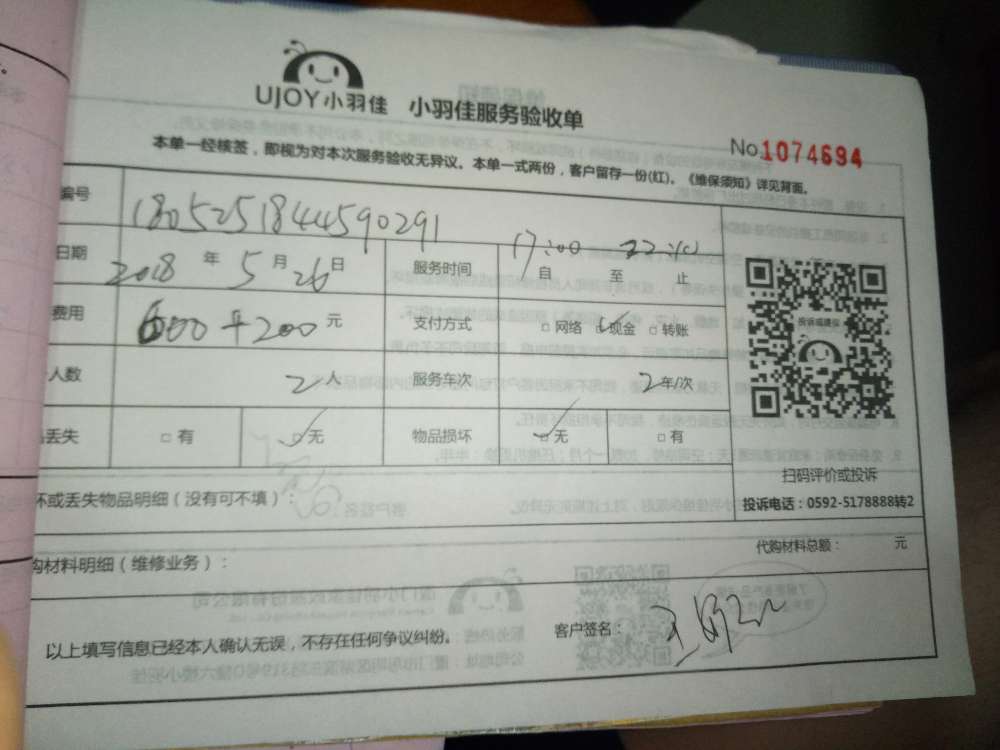 UJOY小羽佳 小羽佳服务验收单
No.1074694
本单一经核签，即视为对本次服务验收无异议。本单一式两份，客户留存一份(红)。《维保须知》详见背面。
编号 1805251844590291
日期 2018 年 5 月 26 日 服务时间 17:00 自 至 止
费用 600+200 元 支付方式 □网络 ☑现金 □转账
人数 2人 服务车次 2车/次
丢失 □有 ☑无 物品损坏 ☑无 □有
投诉或建议
扫码评价或投诉
投诉电话：0592-5178888转2
坏或丢失物品明细（没有可不填）：
购材料明细（维修业务）： 代购材料总额： 元
以上填写信息已经本人确认无误，不存在任何争议纠纷。 客户签名：